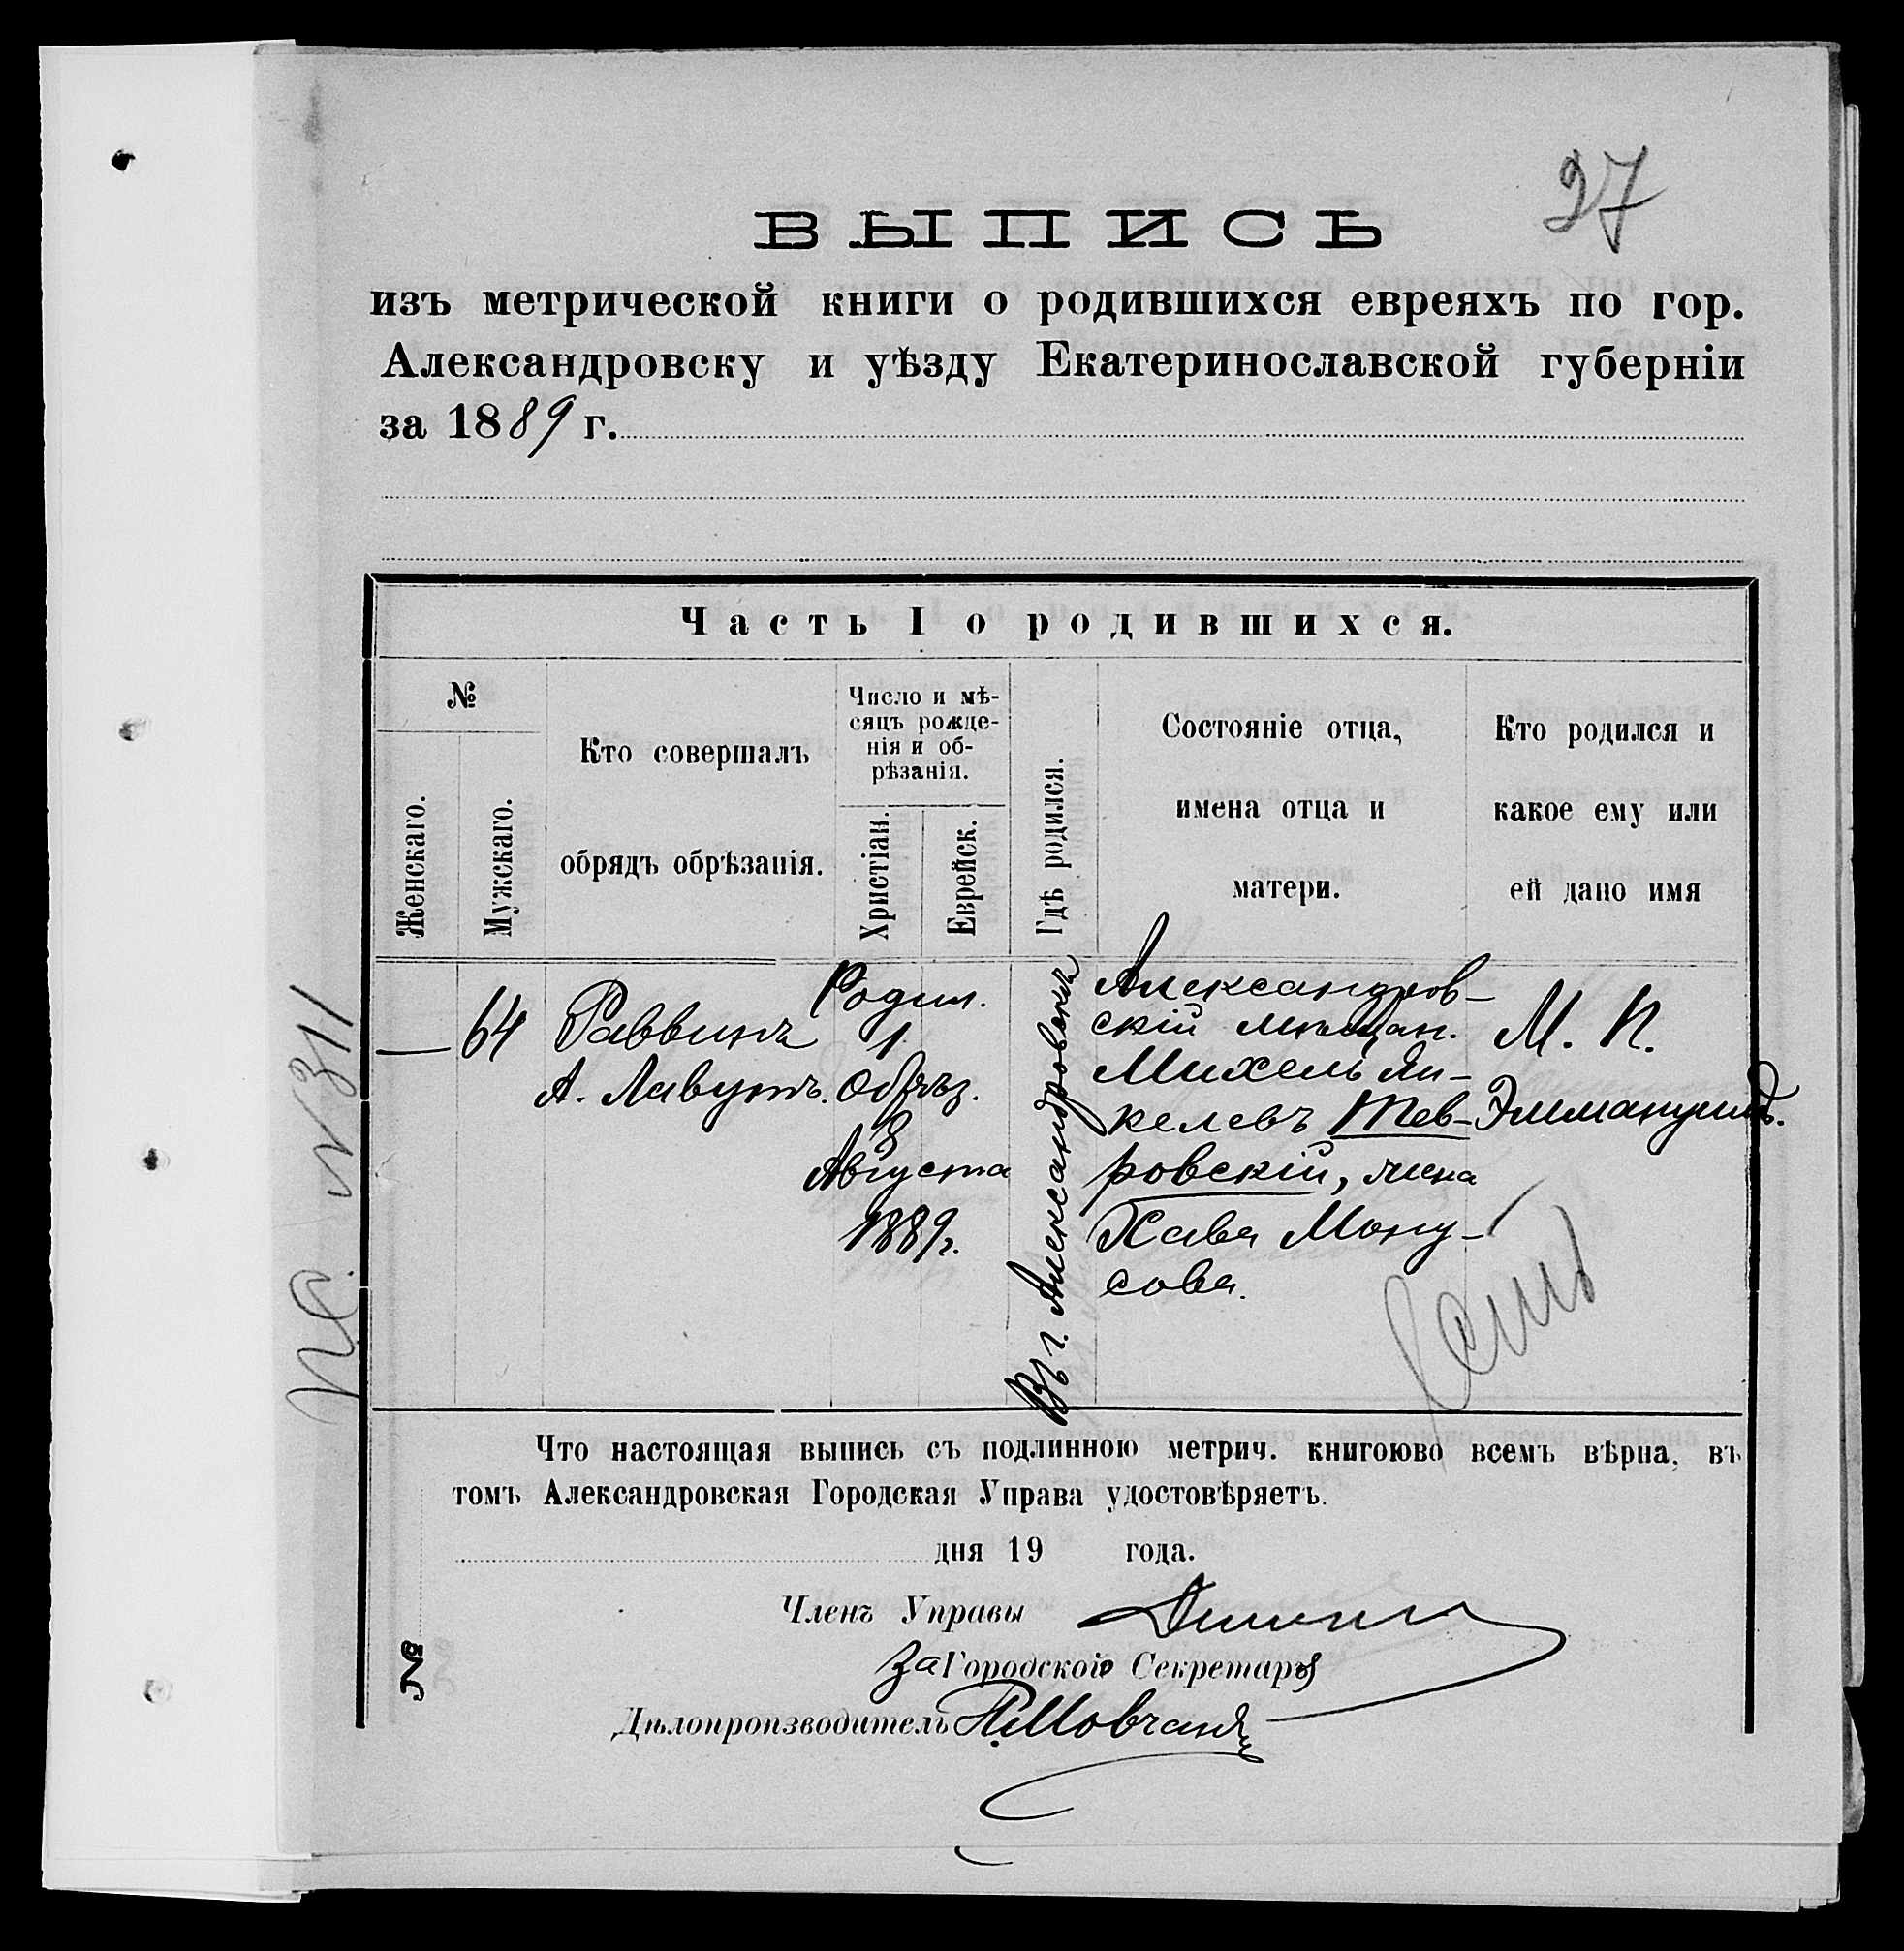 27
ВЫПИСЬ
изъ метрической книги о родившихся евреяхъ по гор.
Александровску и уѣзду Екатеринославской губерніи
за 1889 г.
Часть I о родившихся.
№
Женскаго.
Мужскаго.
Кто совершалъ
обрядъ обрѣзанія.
Число и мѣ-
сяцъ рожде-
нія и об-
рѣзанія.
Христіан.
Еврейск.
Гдѣ родился.
Состояніе отца,
имена отца и
матери.
Кто родился и
какое ему или
ей дано имя
—
64
Раввинъ
А. Лавутъ.
Родил.
1
Обрѣз.
8
Августа
1889г.
Въ г. Александровскѣ
Александров-
скій мѣщан.
Михель Ян-
келевъ Тев-
ровскій, жена
Хава Мону-
сова.
М. П.
Эммануилъ.
Что настоящая выпись съ подлинною метрич. книгоюво всемъ вѣрна, въ
томъ Александровская Городская Управа удостовѣряетъ.
дня 19 года.
Членъ Управы
За Городского Секретаря
Дѣлопроизводитель
№